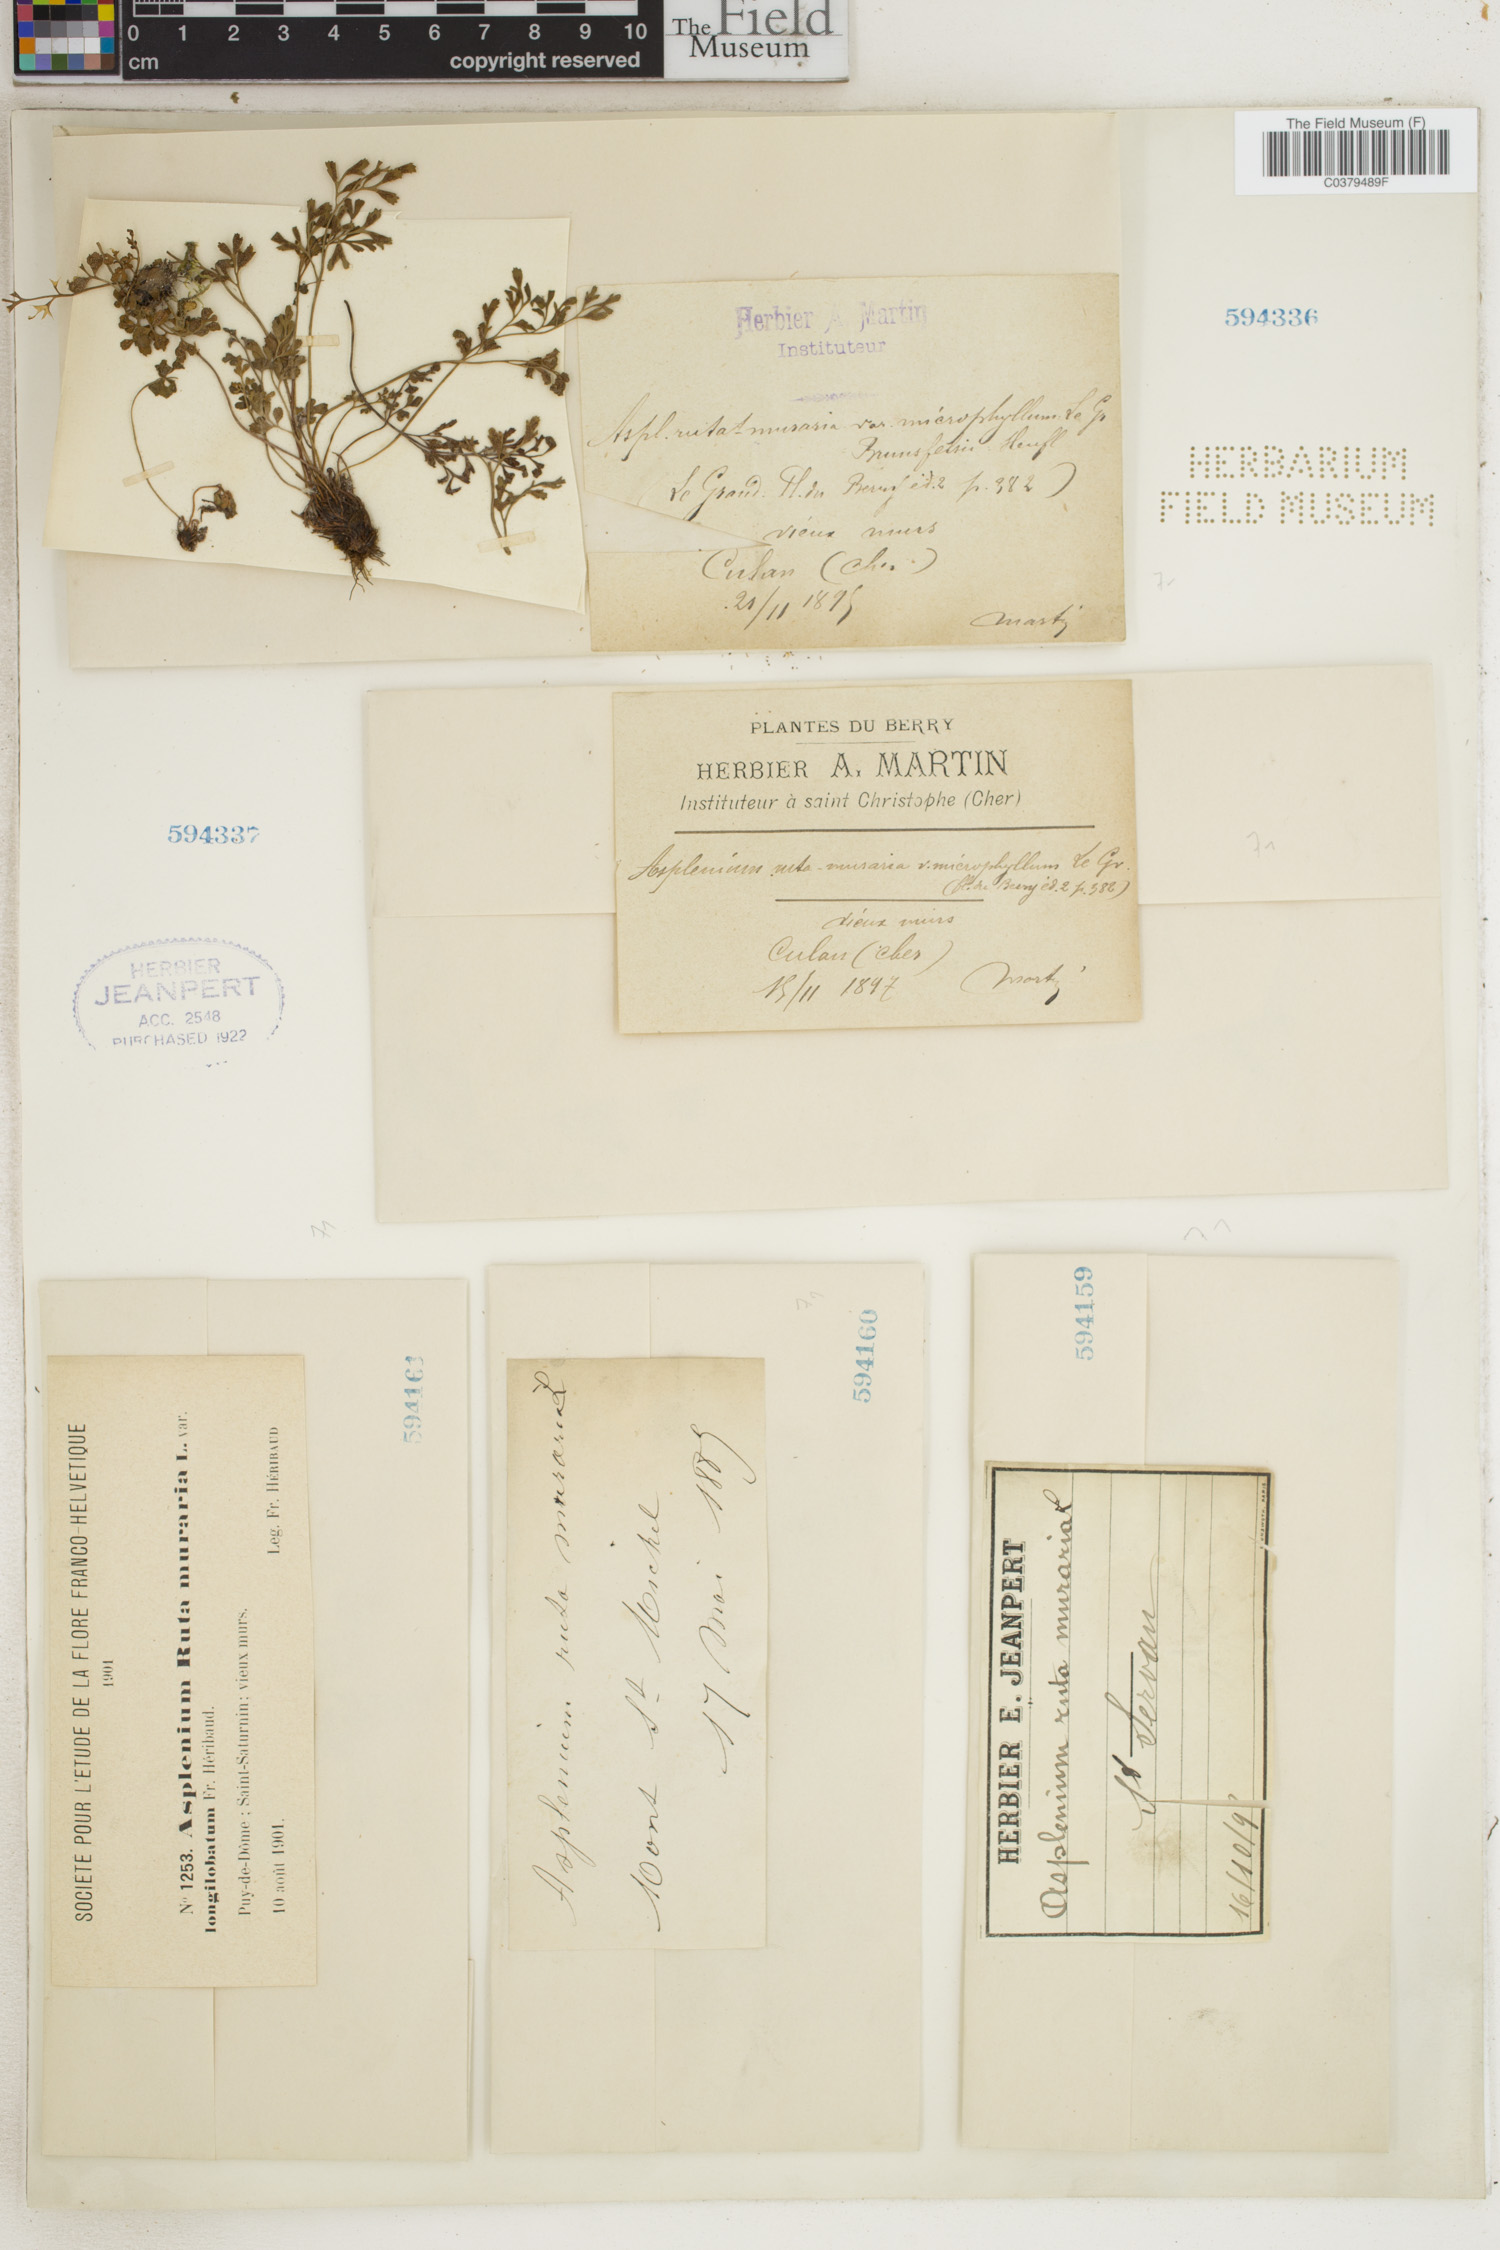 0 1 2 3 4 5 6 7 8 9 10
cm
copyright reserved
The Field
Museum
The Field Museum (F)
C0379489F
594336
HERBARIUM
FIELD MUSEUM
Herbier A. Martin
Instituteur
Aspl. ruta-muraria var. microphyllum Le Gr
Brunsfelsii Heufl
Le Grand. Fl. du Berry éd. 2 p. 382)
vieux murs
Culan (Cher)
21/11 1895
Martin
PLANTES DU BERRY
HERBIER A. MARTIN
Instituteur à saint Christophe (Cher)
Asplenium ruta-muraria v. microphyllum Le Gr.
(Fl. du Berry éd. 2 p. 382)
vieux murs
Culan (Cher)
15/11 1897
Martin
594337
HERBIER
JEANPERT
ACC. 2548
PURCHASED 1922
594163
SOCIETE POUR L'ETUDE DE LA FLORE FRANCO-HELVETIQUE
1901
No 1253. Asplenium Ruta muraria L. var.
longilobatum Fr. Héribaud.
Puy-de-Dôme; Saint-Saturnin; vieux murs.
10 août 1901.
Leg. Fr. HÉRIBAUD
594160
Asplenium ruta muraria L
Mont St Michel
17 Mai 1885
594159
HERBIER E. JEANPERT
Asplenium ruta muraria L
St Servan
16/10/9